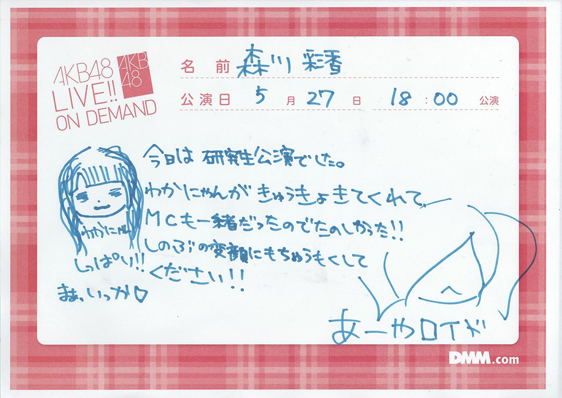 AKB48
LIVE!!
ON DEMAND
AKB
48
名前 森川 彩香
公演日 5月27日 18:00 公演
今日は研究生公演でした。
わかにゃんがきゅうきょきてくれて
MCも一緒だったのでたのしかった!!
しのぶの変顔にもちゅうもくして
ください!!
わかにゃん
しっぱい!!
まぁ、いっか♡
あーやロイド
DMM.com